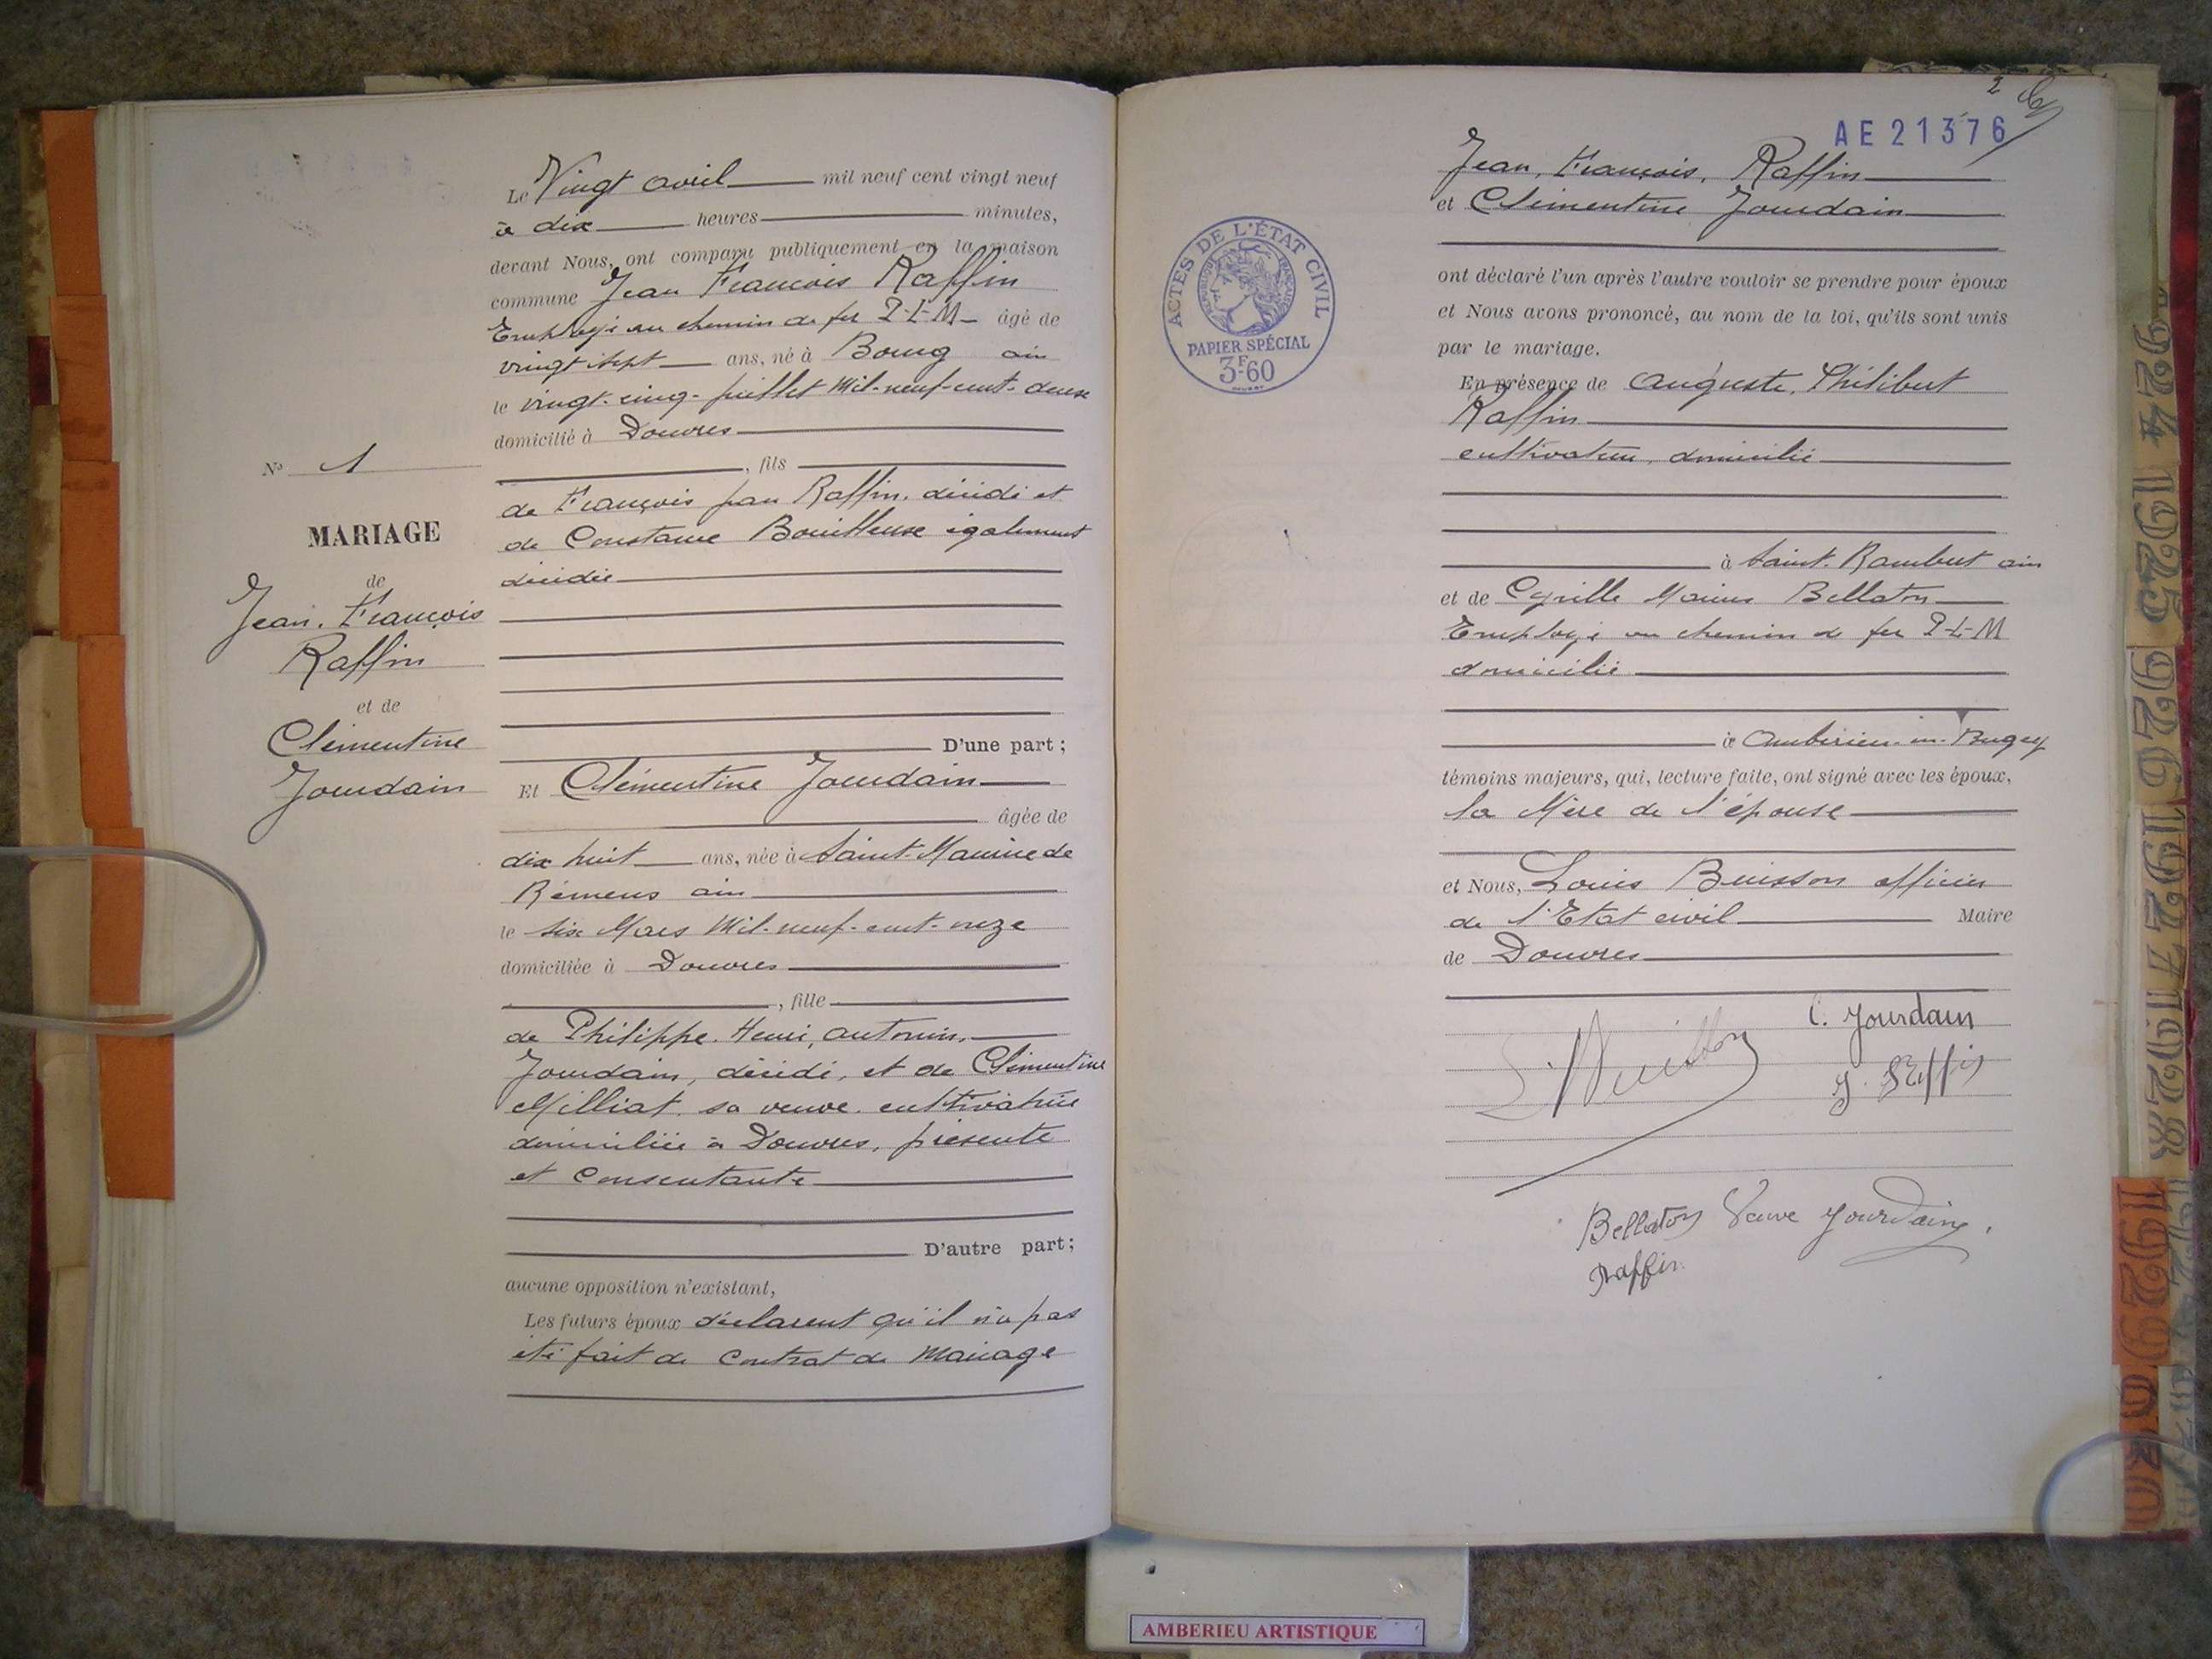 Le Vingt avril mil neuf cent vingt neuf
à dix heures minutes,
devant Nous, ont comparu publiquement en la maison
commune Jean François Raffin
Employé au chemin de fer P-L-M- âgé de
vingt sept ans, né à Bourg ain
le vingt-cinq-juillet Mil-neuf-cent-deux
domicilié à Douvres
, fils
de François Jean Raffin, décédé et
de Constance Bouilleuse également
décédée
D'une part ;
N° 1
MARIAGE
de
Jean, François
Raffin
et de
Clémentine
Jourdain
Et Clémentine Jourdain
âgée de
dix huit ans, née à Saint-Maurice de
Rémens ain
le six Mars Mil-neuf-cent-onze
domiciliée à Douvres
, fille
de Philippe, Henri, antonin,
Jourdain, décédé, et de Clémentine
Milliat, sa veuve, cultivatrice
domiciliée à Douvres, présente
et consentante
D'autre part ;
aucune opposition n'existant,
Les futurs époux déclarent qu'il n'a pas
été fait de contrat de mariage
2
AE 21376
Jean, François, Raffin
et Clémentine Jourdain
ont déclaré l'un après l'autre vouloir se prendre pour époux
et Nous avons prononcé, au nom de la loi, qu'ils sont unis
par le mariage.
ACTES DE L'ÉTAT CIVIL
RÉPUBLIQUE FRANÇAISE
PAPIER SPÉCIAL
3F.60
En présence de Auguste, Philibert
Raffin
cultivateur, domicilié
à Saint-Rambert ain
et de Cyrille Marius Bellaton
Employé au chemin de fer P-L-M
domicilié
à Ambérieu-en-Bugey
témoins majeurs, qui, lecture faite, ont signé avec les époux,
la Mère de l'épouse
et Nous, Louis Buisson officier
de l'Etat civil Maire
de Douvres
L. Buisson
C. Jourdain
J. Raffin
Bellaton Veuve Jourdain.
Raffin
1924
1925
1926
1927
1928
1929
AMBERIEU ARTISTIQUE